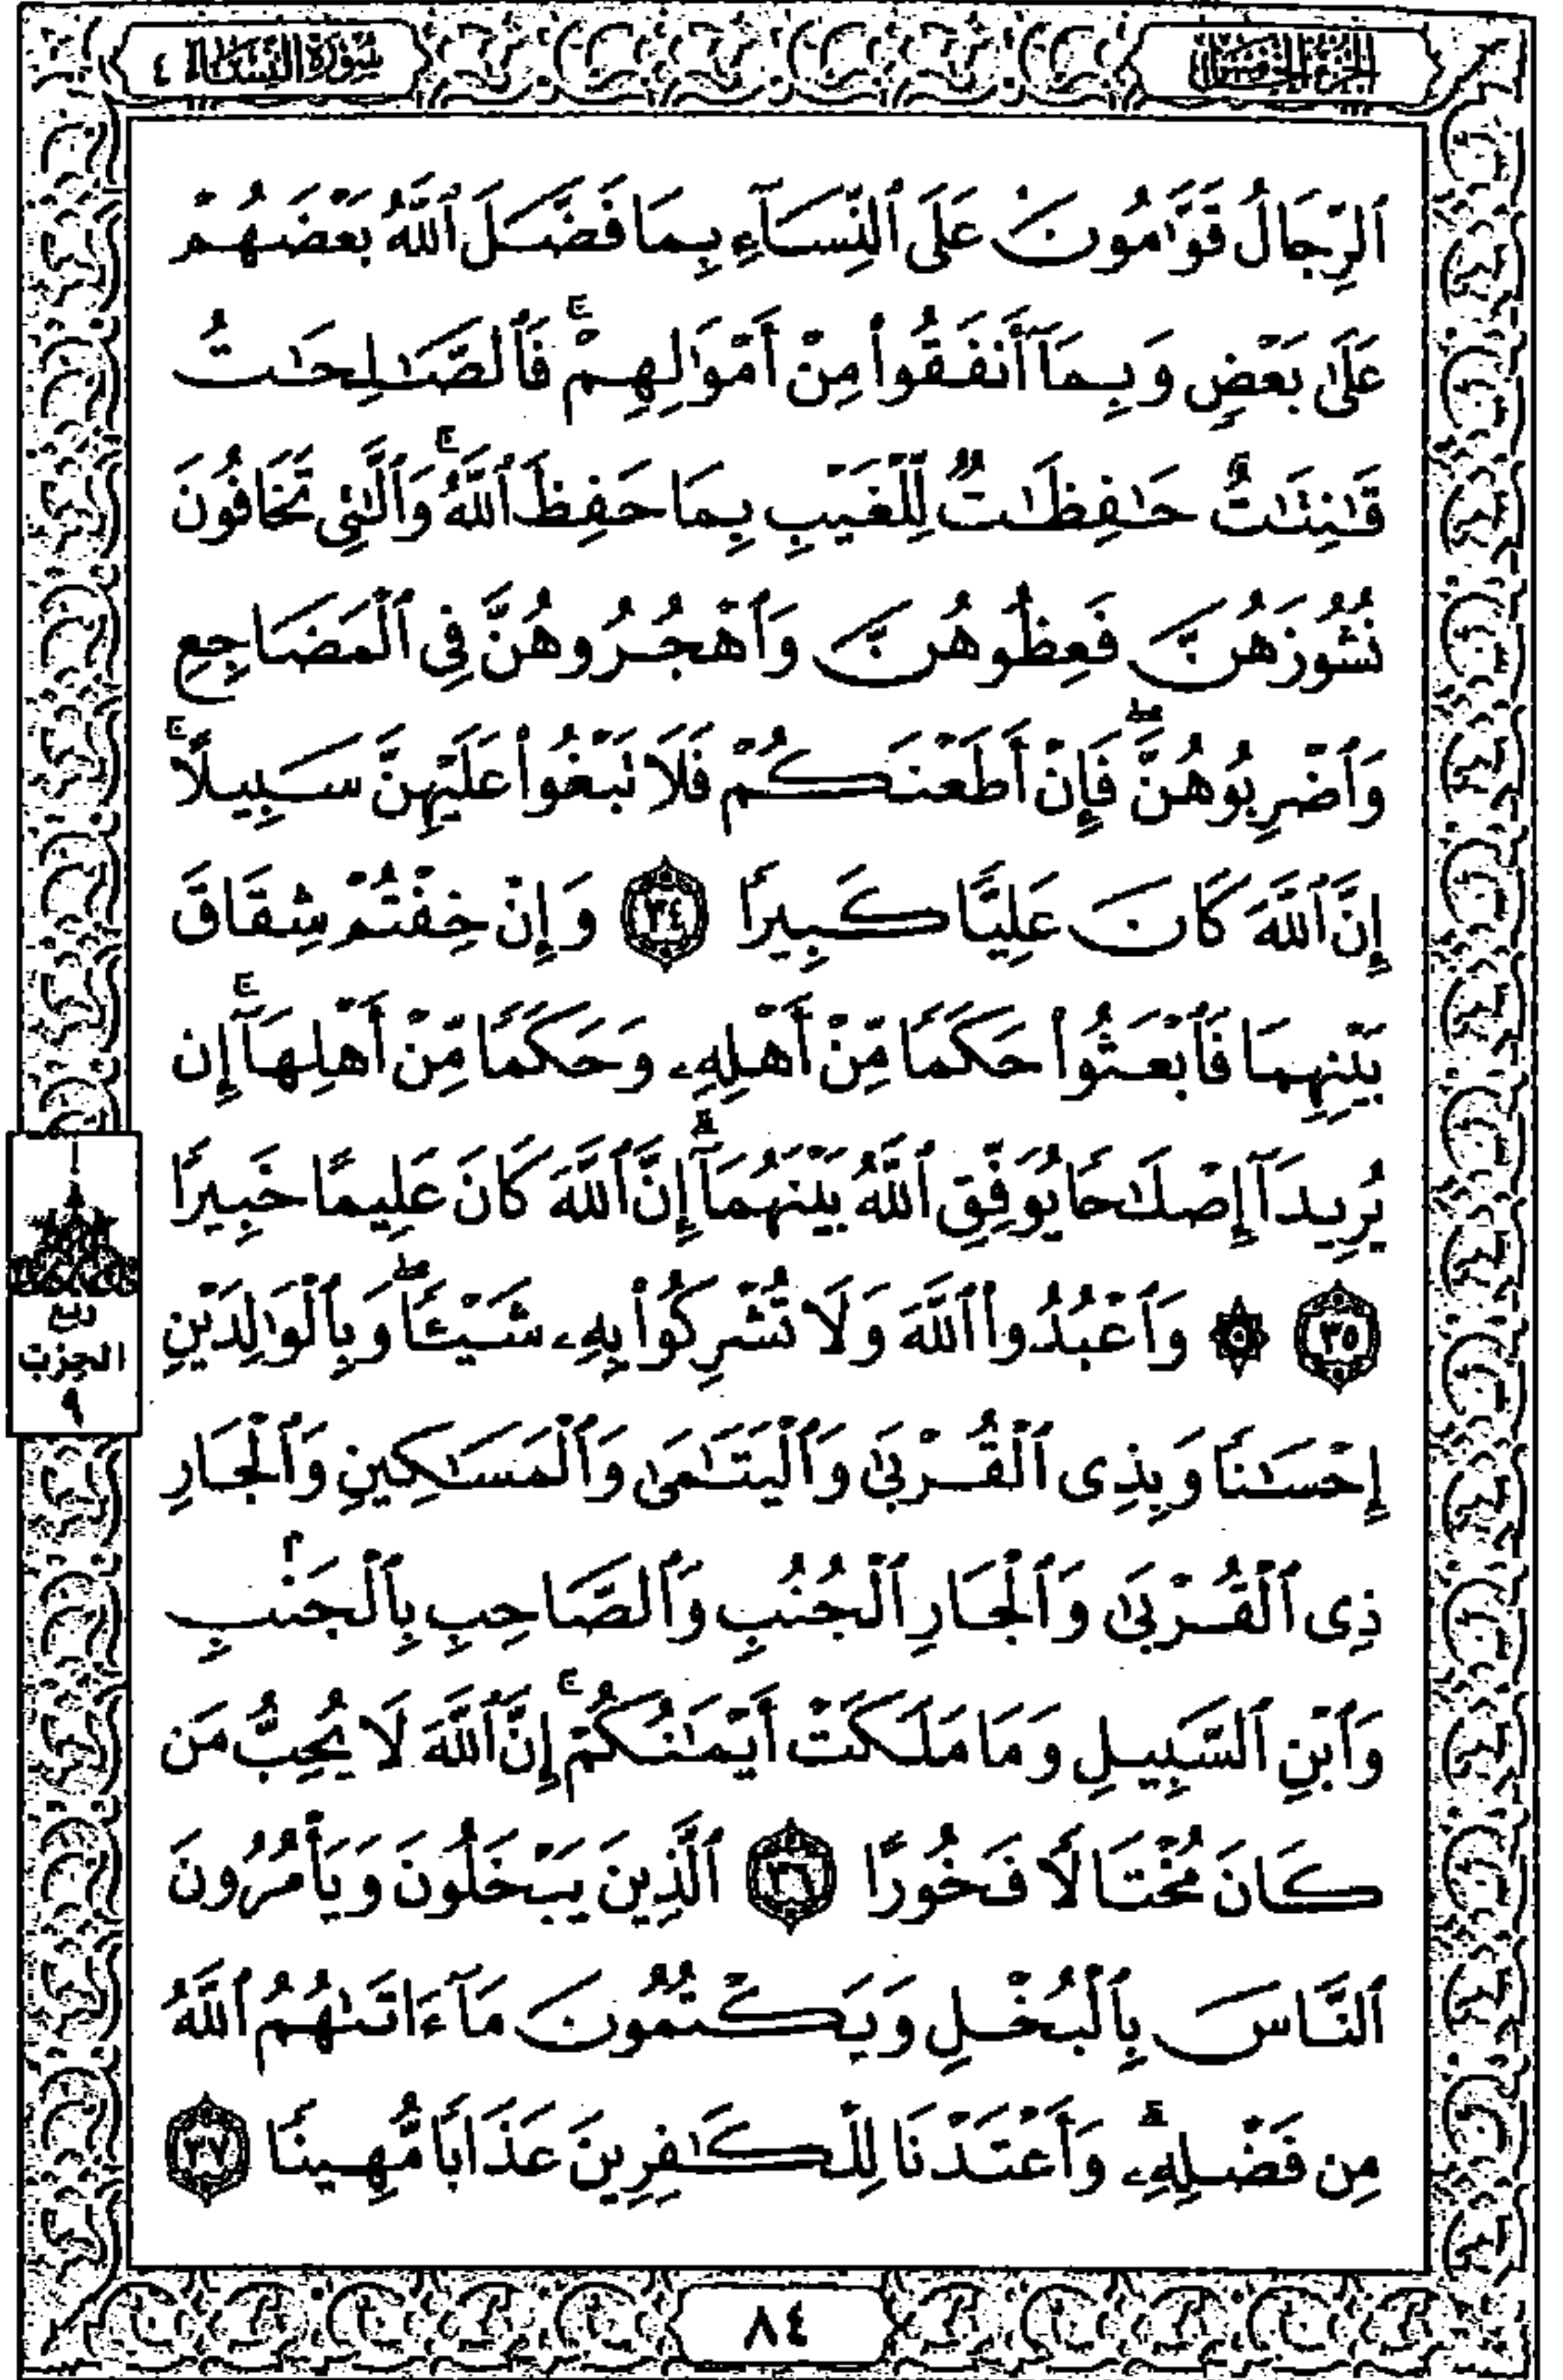 الجزء الخامس
سورة النساء ٤
ٱلرِّجَالُ قَوَّٰمُونَ عَلَى ٱلنِّسَآءِ بِمَا فَضَّلَ ٱللَّهُ بَعْضَهُمْ
عَلَىٰ بَعْضٍ وَبِمَآ أَنفَقُوا۟ مِنْ أَمْوَٰلِهِمْ ۚ فَٱلصَّٰلِحَٰتُ
قَٰنِتَٰتٌ حَٰفِظَٰتٌ لِّلْغَيْبِ بِمَا حَفِظَ ٱللَّهُ ۚ وَٱلَّٰتِى تَخَافُونَ
نُشُوزَهُنَّ فَعِظُوهُنَّ وَٱهْجُرُوهُنَّ فِى ٱلْمَضَاجِعِ
وَٱضْرِبُوهُنَّ ۖ فَإِنْ أَطَعْنَكُمْ فَلَا تَبْغُوا۟ عَلَيْهِنَّ سَبِيلًا ۚ
إِنَّ ٱللَّهَ كَانَ عَلِيًّا كَبِيرًا ٣٤ وَإِنْ خِفْتُمْ شِقَاقَ
بَيْنِهِمَا فَٱبْعَثُوا۟ حَكَمًا مِّنْ أَهْلِهِۦ وَحَكَمًا مِّنْ أَهْلِهَآ ۚ إِن
يُرِيدَآ إِصْلَٰحًا يُوَفِّقِ ٱللَّهُ بَيْنَهُمَآ ۗ إِنَّ ٱللَّهَ كَانَ عَلِيمًا خَبِيرًا
٣٥ ۞ وَٱعْبُدُوا۟ ٱللَّهَ وَلَا تُشْرِكُوا۟ بِهِۦ شَيْـًٔا ۖ وَبِٱلْوَٰلِدَيْنِ
إِحْسَٰنًا وَبِذِى ٱلْقُرْبَىٰ وَٱلْيَتَٰمَىٰ وَٱلْمَسَٰكِينِ وَٱلْجَارِ
ذِى ٱلْقُرْبَىٰ وَٱلْجَارِ ٱلْجُنُبِ وَٱلصَّاحِبِ بِٱلْجَنۢبِ
وَٱبْنِ ٱلسَّبِيلِ وَمَا مَلَكَتْ أَيْمَٰنُكُمْ ۚ إِنَّ ٱللَّهَ لَا يُحِبُّ مَن
كَانَ مُخْتَالًا فَخُورًا ٣٦ ٱلَّذِينَ يَبْخَلُونَ وَيَأْمُرُونَ
ٱلنَّاسَ بِٱلْبُخْلِ وَيَكْتُمُونَ مَآ ءَاتَىٰهُمُ ٱللَّهُ
مِن فَضْلِهِۦ ۗ وَأَعْتَدْنَا لِلْكَٰفِرِينَ عَذَابًا مُّهِينًا ٣٧
ربع
الحزب
٩
٨٤